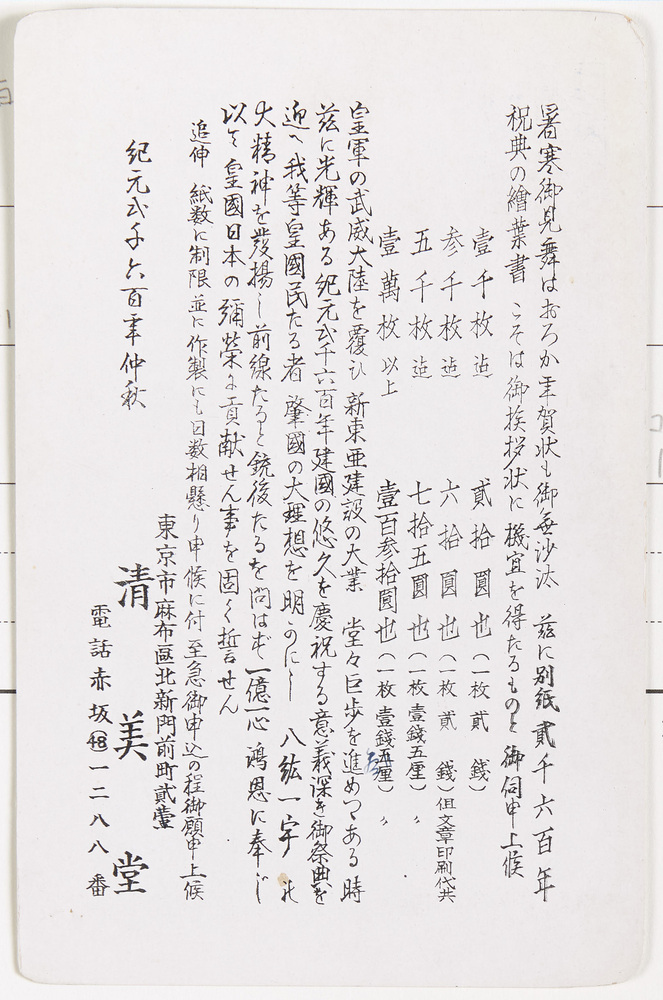 暑寒御見舞はおろか年賀状も御無沙汰 茲に別紙貳千六百年
祝典の繪葉書 こそは御挨拶状に機宜を得たるものと御伺申上候
壹千枚迠 貳拾圓也(一枚貳 錢)
参千枚迠 六拾圓也(一枚貳 錢)但文章印刷代共
五千枚迠 七拾五圓也(一枚壹錢五厘)〃
壹萬枚以上 壹百参拾圓也(一枚壹錢五厘)〃
皇軍の武威大陸を覆ひ 新東亜建設の大業 堂々巨歩を進めつゝある時
茲に光輝ある紀元弐千六百年建國の悠久を慶祝する意義深き御祭典を
迎へ我等皇國民たる者 肇國の大理想を明かにし 八紘一宇 の
大精神を發揚し前線たると銃後たるを問はず 一億一心 鴻恩に奉じ
以て皇國日本の彌榮に貢献せん事を固く誓はせん
追伸 紙数に制限並に作製にも日数相懸り申候に付至急御申込の程御願申上候
紀元弐千六百年仲秋
東京市麻布區北新門前町貳壹
清美堂
電話赤坂48一二八八番